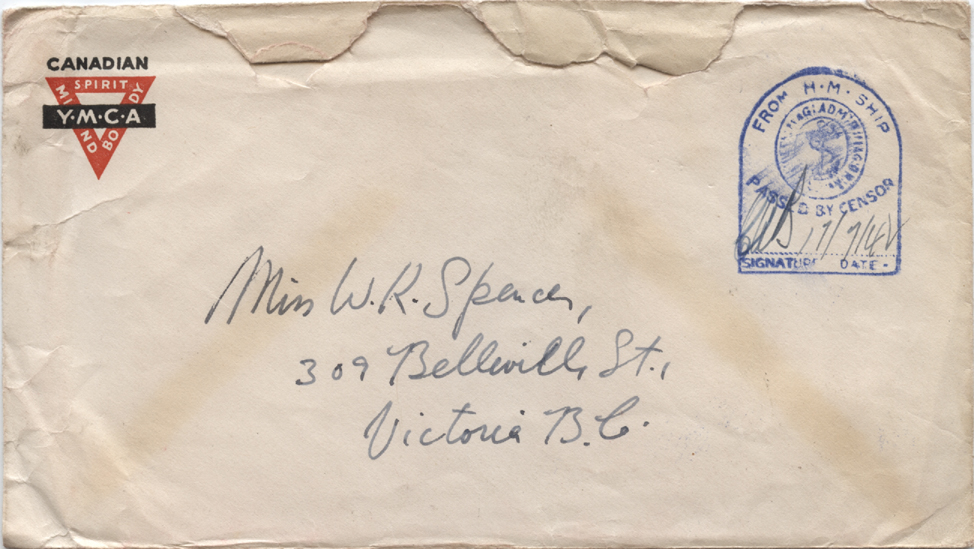 CANADIAN
SPIRIT
MIND
BODY
Y·M·C·A
FROM H·M·SHIP
PASSED BY CENSOR
17/7/42
SIGNATURE DATE-
Miss W.R. Spencer,
309 Belleville St.,
Victoria B.C.